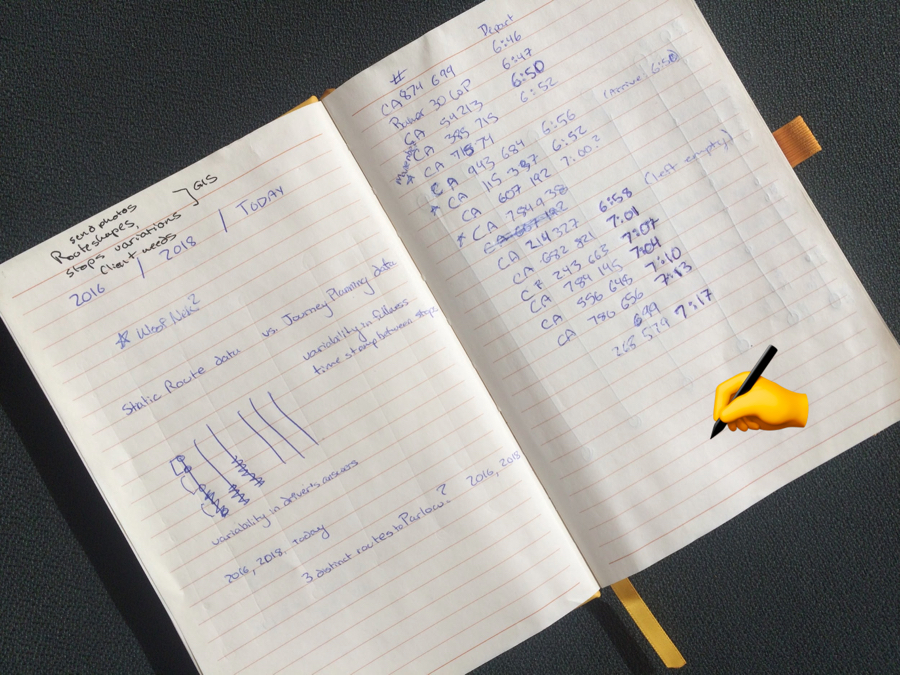 send photos
Routeshapes,
stops variations
Client needs
GIS
2016 / 2018 / TODAY
Static Route data vs. Journey Planning data
variability in fullness
time stamp between stops
variability in drivers answers
2016, 2018, Today
3 distinct routes to Parlow? 2016, 2018
# Depart
CA 874 699 6:46
30 6:47
CA 54213 6:50
CA 385 715 6:52
CA 71574
CA 943 684 6:56 (Arrive 6:50)
CA 115 387 6:52
CA 607 192 7:00?
CA 784 938
CA 607 192
CA 214 327 6:58 (left empty)
CA 682 821 7:01
243 663 7:07
CA 784 145 7:04
556 648 7:10
CA 786 656 7:13
699
265 579 7:17